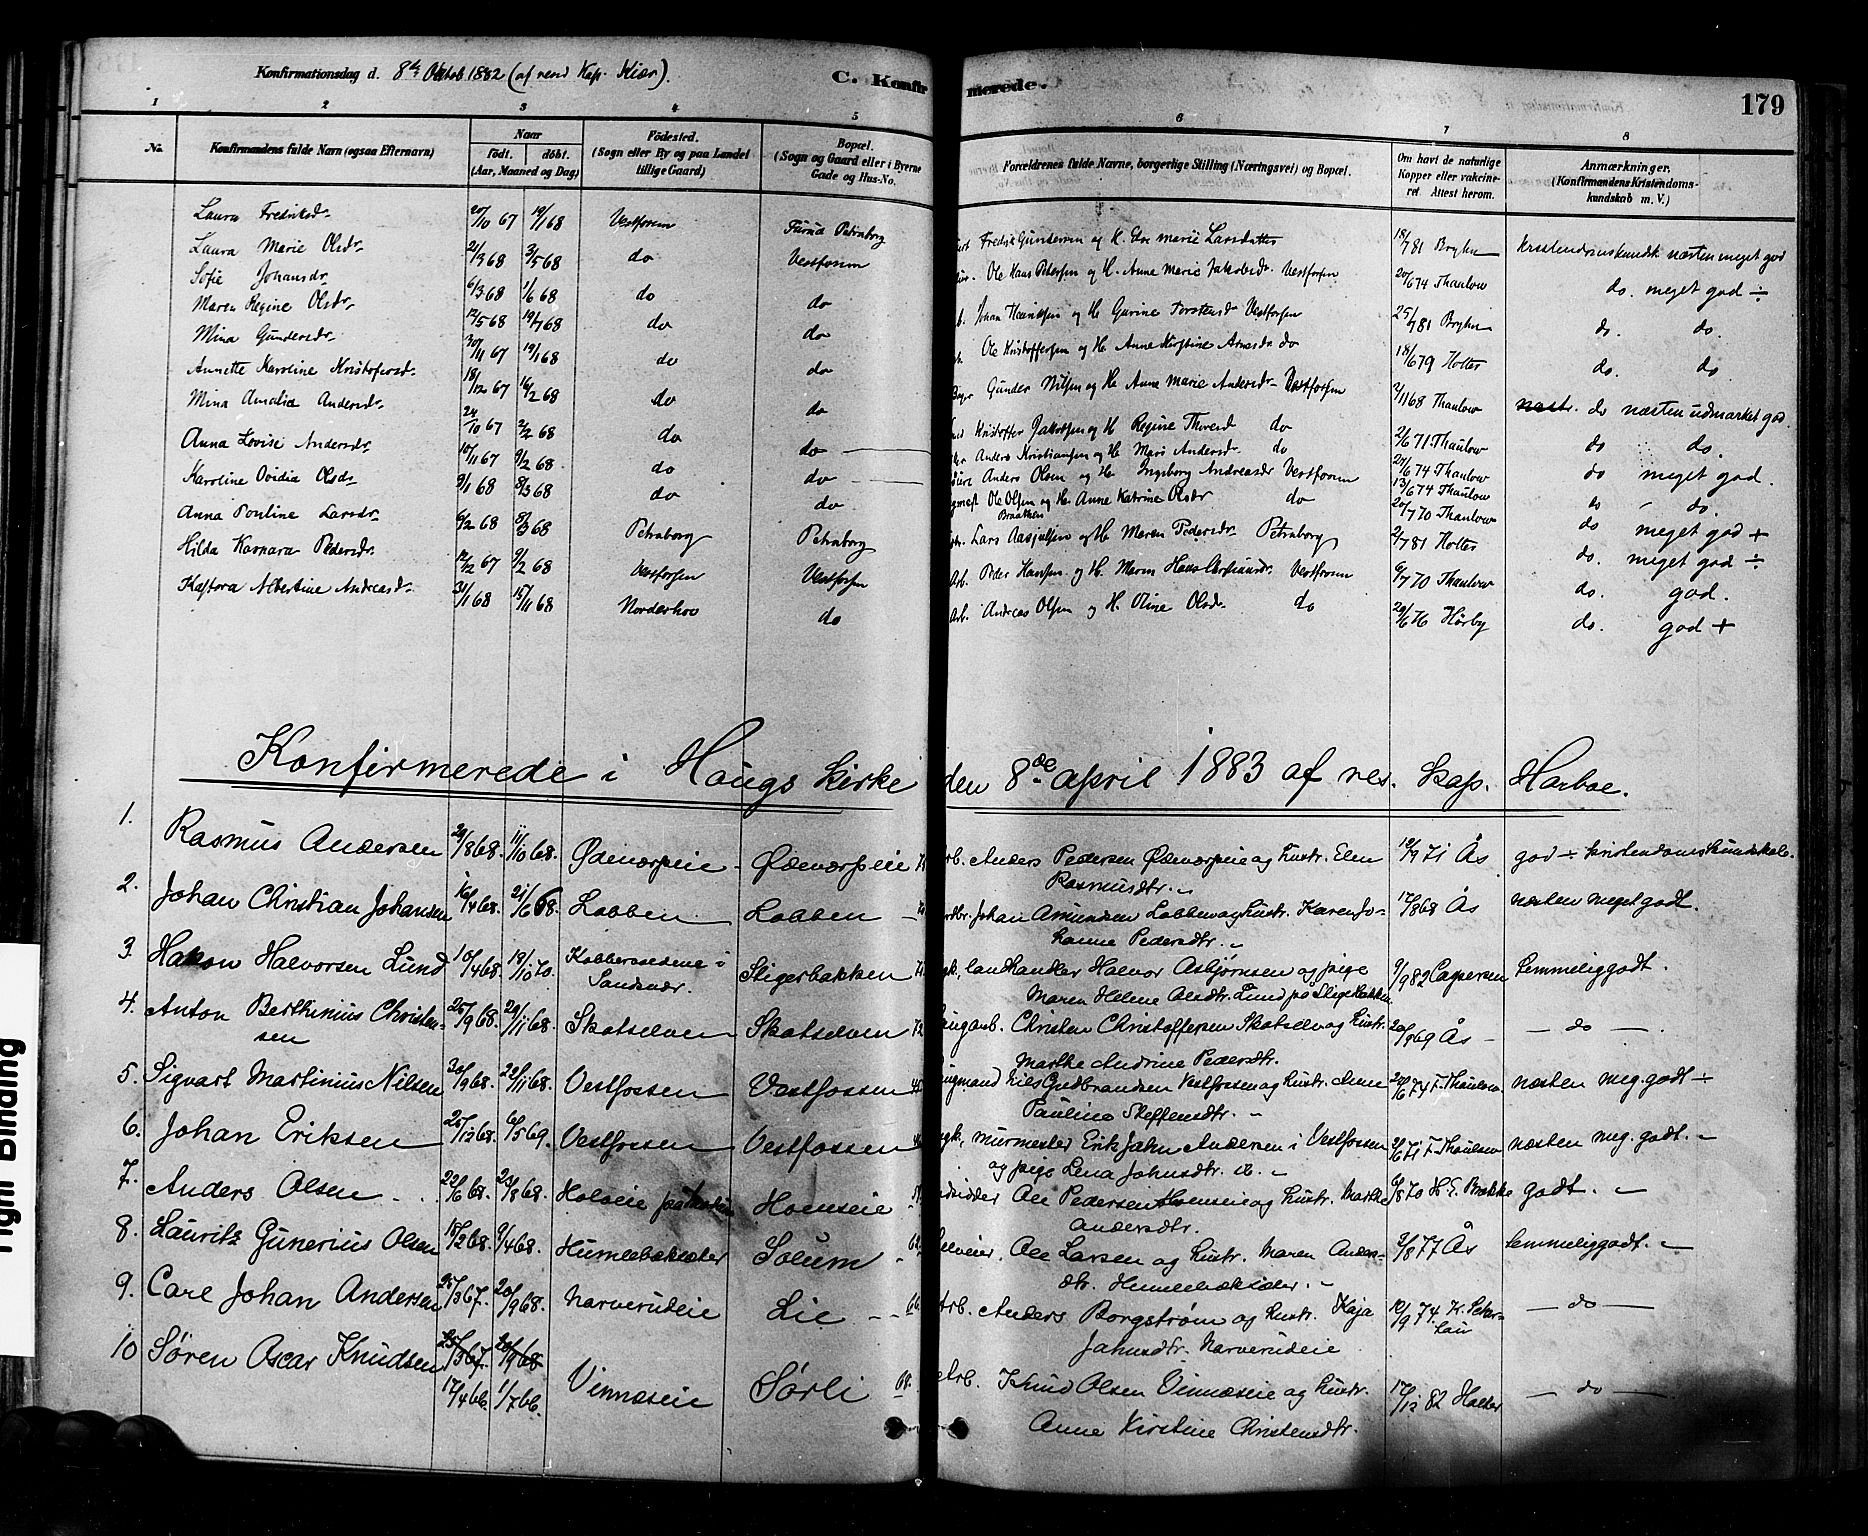 Konfirmationsdag d. 8de Oktob 1882 (af resd Kap. Kiær).
C. Konfirmerede.
179
1 2 3 4 5 6 7 8
No.
Konfirmandens fulde Navn (ogsaa Efternavn)
Naar
födt. döbt.
(Aar, Maaned og Dag)
Födested.
(Sogn eller By og paa Landet
tillige Gaard)
Bopæl.
(Sogn og Gaard eller i Byerne
Gade og Hus-No.
Forældrenes fulde Navne, borgerlige Stilling (Næringsvei) og Bopæl.
Om havt de naturlige
Kopper eller vakcine-
ret. Attest herom.
Anmærkninger.
(Konfirmandens Kristendoms-
kundskab m. V.)
Laura Fredriksdr 20/10 67 19/1 68 Vestfossen Furud Petraborg Fredrik Gundersen og H. Marie Larsdatter 18/7 81 Bryhn kristendomskundsk næsten meget god
Laura Marie Olsdr 21/3 68 3/5 68 do Vestfossen Ole Hans Petersen og H. Anne Marie Jakobsdr Vestfossen 20/6 74 Thaulow do. meget god ÷
Sofie Johansdr 6/3 68 1/6 68 do do Johan Henriksen og H Gurine Torstensdr Vestfossen 25/7 81 Bryhn do. do.
Maren Regine Olsdr 12/5 68 19/7 68 do do Ole Kristoffersen og H. Anne Kirstine Arnesdr do 18/6 79 Holter do. do.
Mina Gundersdr 30/11 67 19/1 68 do do Gunder Nilsen og H. Anne Marie Andersdr Vestfossen 2/11 68 Thaulow do næsten udmærket god
Annette Karoline Kristofersdr 18/12 67 16/2 68 do do Kristoffer Jakobsen og H Regine do 2/6 71 Thaulow do do.
Mina Amalia Andersdr 24/10 67 2/2 68 do do Anders Kristiansen og H. Mari Andersdr do 24/6 74 Thaulow do meget god.
Anna Lovise Andersdr 10/11 67 9/2 68 do do Anders Olsen og H. Ingeborg Andreasdr Vestfossen 13/6 74 Thaulow do do.
Karoline Ovidia Olsdr 9/1 68 8/3 68 do do Ole Olsen og H. Anne Katrine Olsdr do 20/7 70 Thaulow do meget god +
Braathen
Anna Pouline Larsdr 6/2 68 8/3 68 Petraborg Petraborg Lars Aasjulsen og H Maren Pedersdr Petraborg 2/7 81 Holter do. meget god ÷
Hilda Kaspara Pedersdr 12/12 67 9/2 68 Vestfossen Vestfossen Arb. Peder Hansen og H. Maren Vestfossen 6/7 70 Thaulow do. god.
Kastora Albertine Andreasdr 31/1 68 15/11 68 Norderhov do Arb. Andreas Olsen og H. Oline Olsdr do 20/6 76 Hörby do. god +
Konfirmerede i Hougs kirke den 8de april 1883 af res. Kap. Harboe.
1. Rasmus Andersen 29/8 68. 11/10 68. Ødeværpeie Ødeværpeie Arb. Anders Pedersen Ødeværpeie og hustr. Elen 19/7 71 Ås god ÷ kristendomskundskab.
Rasmusdtr.
2. Johan Christian Johansen 16/4 68. 21/6 68. Lobben Lobben Johan Amundsen Lobben og hustr. Karen Jo- 17/8 68 Ås næsten meget godt.
hanne Pedersdtr.
3. Hakon Halvorsen Lund 10/4 68. 18/10 70. Kobbervoldene i Stigerbakken landhandler Halvor Asbjørnsen og pige 9/9 82 Caspersen temmelig godt.
Sandsvær. Maren Helene Olsdtr. Lund på Stigerbakken
4. Anton Berthinius Christen- 25/9 68. 29/11 68. Skotselven Skotselven Christen Christoffersen Skotselv og hustr. 20/8 69 Ås — do —.
sen Marthe Andrine Pedersdtr.
5. Sigvart Martinius Nilsen 20/9 68. 22/11 68. Vestfossen Vestfossen Nils Gudbrandsen Vestfossen og hustr. Anne 20/6 74 F. Thaulow næsten meg. godt ÷
Pauline Steffensdtr.
6. Johan Eriksen 25/12 68. 6/5 69. Vestfossen Vestfossen murmester Erik John Andersen i Vestfossen 2/6 71 F. Thaulow næsten meg. godt.
og pige Lena Johnsdtr. ib.
7. Anders Olsen 22/6 68. 23/8 68. Holseie Hoenseie Ole Pedersen Hoenseie og hustr. Marthe 6/8 70 H. E. Brække godt.
Andersdtr.
8. Lauritz Gunerius Olsen 15/2 68. 9/4 68. Humlebæksider Solum Selveier. Ole Larsen og hustr. Maren Anders- 2/8 77 Ås temmelig godt.
dtr. Humlebæksider.
9. Carl Johan Andersen 25/3 67. 20/9 68. Narverudeie Lie Arb. Anders Borgstrøm og hustr. Kaja 10/9 74. — do —
Johnsdtr. Narverudeie
10 Søren Oscar Knudsen 25/3 67. 20/9 68
17/4 66. 1/7 66. Vinnæseie Sørli Arb. Knud Olsen Vinnæseie og hustr. 17/12 82 Holter — do —
Anne Kirstine Christensdtr.
Tight Binding